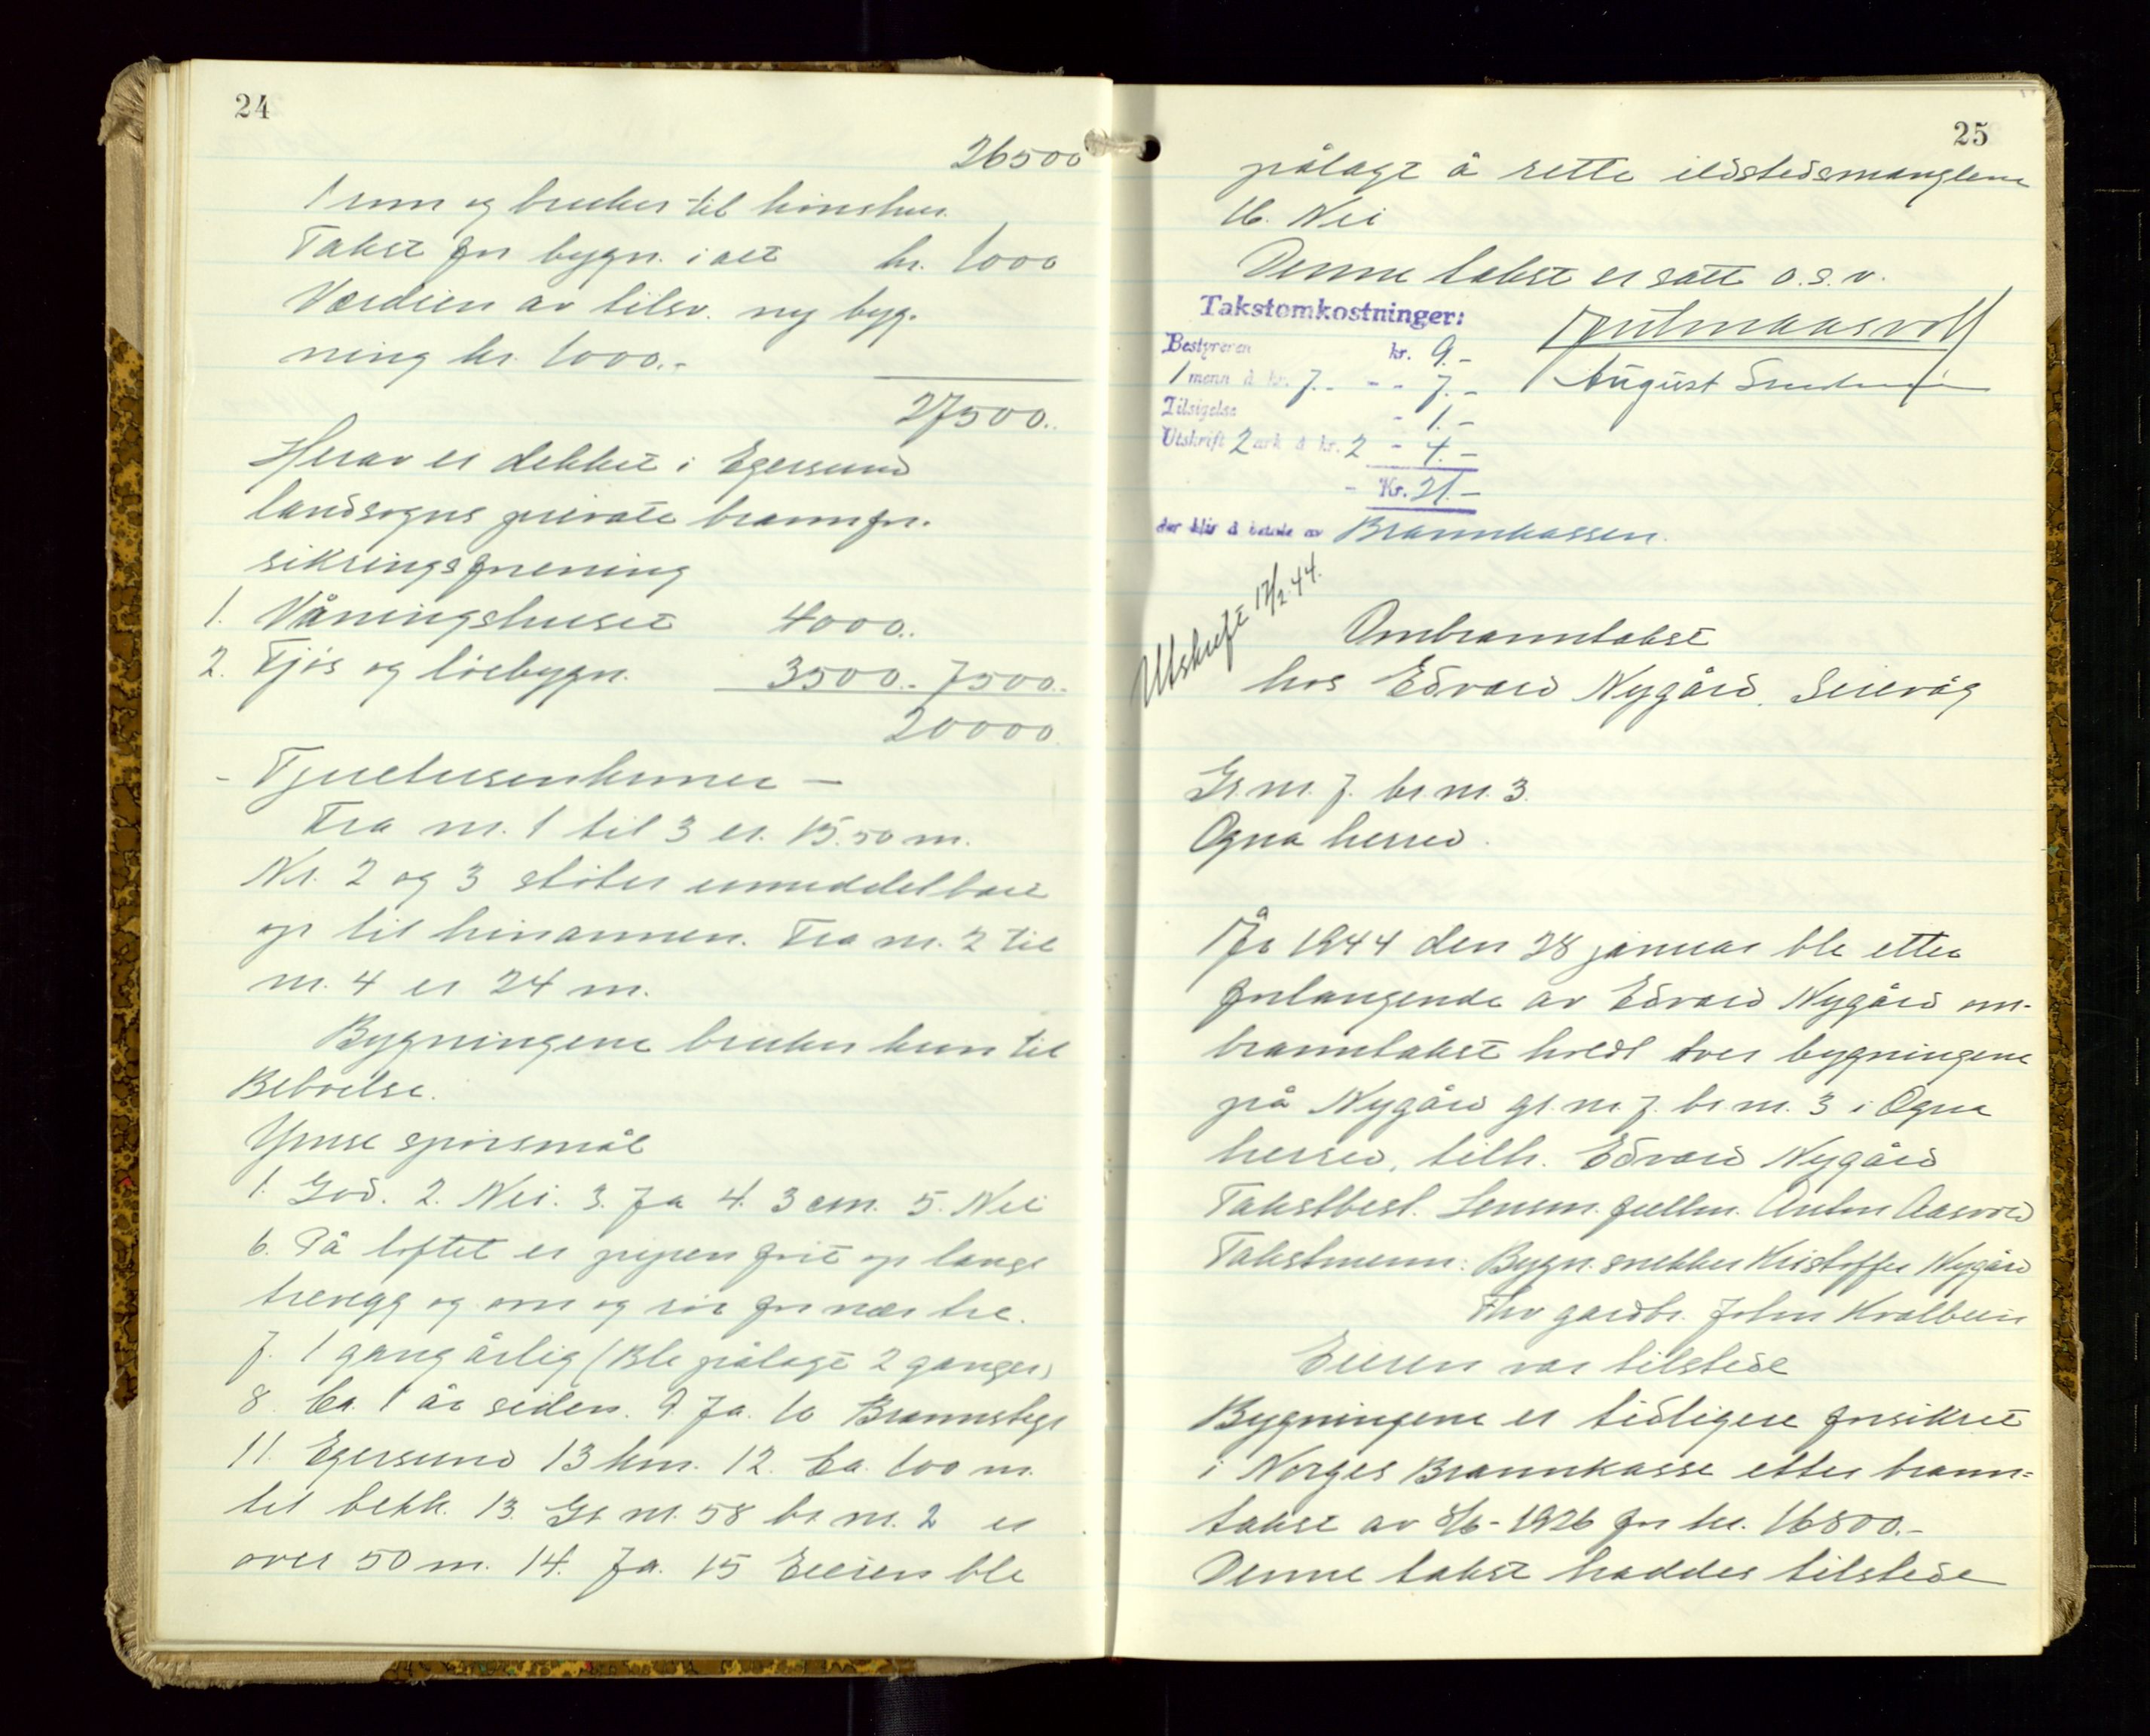 24
26500
1 rum og brukes til hønshus.
Takst for bygn. i alt kr. 1000
Verdien av tilsv. ny byg-
ning kr. 1000.-
27500.-
Herav er dekket i Egersund
landsogns private brannfor-
sikringsforening
1. Våningshuset 4000.-
2. Fjøs og løebygn. 3500.- 7500.-
20000
- Tjuetusenkroner -
Fra nr. 1 til 3 er 15.50 m.
Nr. 2 og 3 støter umiddelbart
op til hinannen. Fra nr. 2 til
nr. 4 er 24 m.
Bygningene brukes kun til
Beboelse.
Ymse spørsmål
1. God. 2. Nei. 3. Ja 4. 3 cm. 5. Nei
6. På loftet er pipen ført op langs
trevegg og ovn og rør for nær tre.
7. 1 gang årlig (Ble pålagt 2 ganger)
8. Ca. 1 år siden. 9. Ja. 10 Brannstige
11. Egersund 13 km. 12. Ca. 100 m.
til bekk. 13. Gr nr. 58 br nr. 2 er
over 50 m. 14. Ja. 15 Eieren ble
25
pålagt å rette ildstedsmanglene
16. Nei
Denne takst er satt o.s.v.
Takstomkostninger:
Bestyreren kr. 9.-
1 menn à kr. 7.- - - 7.-
Tilsigelse - 1.-
Utskrift 2 ark à kr. 2 - 4.-
- Kr. 21.-
der blir å betale av Brannkassen.
August
Utskrift 12/2.44.
Ombranntakst
hos Edvard Nygård, Sirevåg
Gr. nr. 7. br. nr. 3.
Ogna herred.
År 1944 den 28 januar ble etter
forlangende av Edvard Nygård om-
branntakst holdt over bygningene
på Nygård gr. nr. 7. br. nr. 3 i Ogna
herred, tilh. Edvard Nygård
Takstbest. Lensm. fullm. Anton Aasvold
Takstmenn: Bygn. snekker Kristoffer Nygård
Fhv gardbr. John Kvalbein
Eieren var tilstede
Bygningene er tidligere forsikret
i Norges Brannkasse etter brann=
takst av 8/6-1926 for kr. 16800.-
Denne takst haddes tilstede